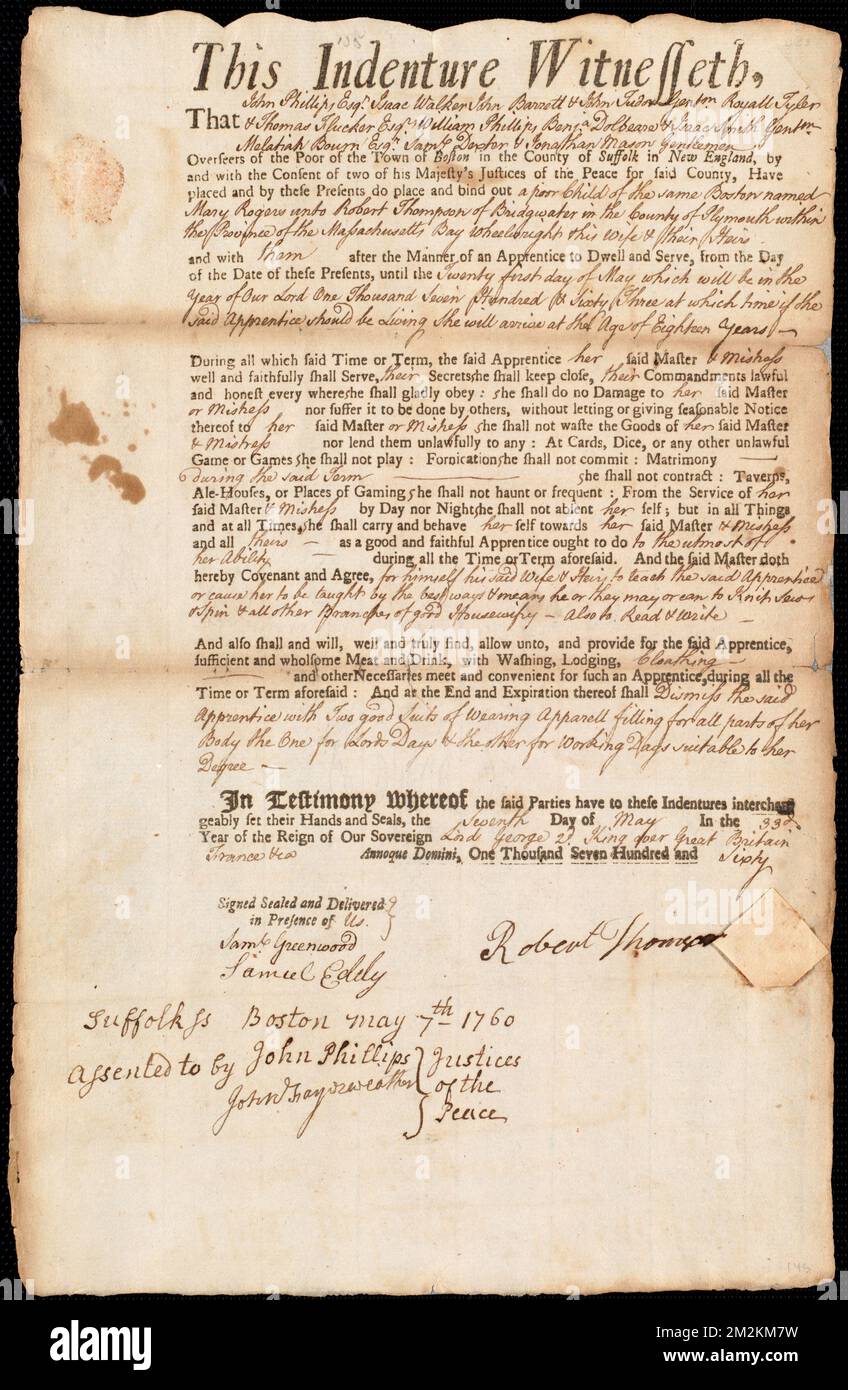 This Indenture Witnesseth,
John Phillips Esqr. Isaac Walker John Barrett & John Tudor Gentm Royall Tyler
That & Thomas Flucker Esqrs William Phillips Benja. Dolbeare & Isaac Smith Gentm
Melatiah Bourn Esqr. Saml. Dexter & Jonathan Mason Gentlemen
Overseers of the Poor of the Town of Boston in the County of Suffolk in New England, by
and with the Consent of two of his Majesty's Justices of the Peace for said County, Have
placed and by these Presents do place and bind out a poor Child of the same Boston named
Mary Rogers unto Robert Thompson of Bridgwater in the County of Plymouth within
the Province of the Massachusetts Bay Wheelwright & his Wife & their Heirs
and with them after the Manner of an Apprentice to Dwell and Serve, from the Day
of the Date of these Presents, until the Twenty first day of May which will be in the
Year of Our Lord One Thousand Seven Hundred & Sixty Three at which time if the
said Apprentice should be Living She will arrive at the Age of Eighteen Years —
During all which said Time or Term, the said Apprentice her said Master & Mistress
well and faithfully shall Serve, their Secrets she shall keep close, their Commandments lawful
and honest every where she shall gladly obey : she shall do no Damage to her said Master
or Mistress nor suffer it to be done by others, without letting or giving seasonable Notice
thereof to her said Master or Mistress she shall not waste the Goods of her said Master
& Mistress nor lend them unlawfully to any : At Cards, Dice, or any other unlawful
Game or Games she shall not play : Fornication she shall not commit : Matrimony —
during the said Term — she shall not contract : Taverns,
Ale-Houses, or Places of Gaming she shall not haunt or frequent : From the Service of her
said Master & Mistress by Day nor Night she shall not absent her self ; but in all Things
and at all Times, she shall carry and behave her self towards her said Master & Mistress
and all theirs — as a good and faithful Apprentice ought to do to the utmost of
her Ability during all the Time or Term aforesaid. And the said Master doth
hereby Covenant and Agree, for himself his said Wife & Heirs to teach the said Apprentice
or cause her to be taught by the best ways & means he or they may or can to Knit Sew
& Spin & all other Branches of good Housewifry — Also to Read & Write —
And also shall and will, well and truly find, allow unto, and provide for the said Apprentice,
sufficient and wholsome Meat and Drink, with Washing, Lodging, Cloathing —
— and other Necessaries meet and convenient for such an Apprentice, during all the
Time or Term aforesaid : And at the End and Expiration thereof shall Dismiss the said
Apprentice with Two good Suits of Wearing Apparell fitting for all parts of her
Body the One for Lords Days & the other for Working Days suitable to her
Degree —
In Testimony Whereof the said Parties have to these Indentures interchan
geably set their Hands and Seals, the Seventh Day of May In the 33d.
Year of the Reign of Our Sovereign Lord George 2d. King over Great Britain
France &ca Annoque Domini, One Thousand Seven Hundred and Sixty
Signed Sealed and Delivered
in Presence of Us.
Saml. Greenwood
Samuel Eddy
Robert
Suffolk ss Boston may 7th 1760
Assented to by John Phillips Justices
of the
Peace
alamy
Image ID: 2M2KM7W
www.alamy.com